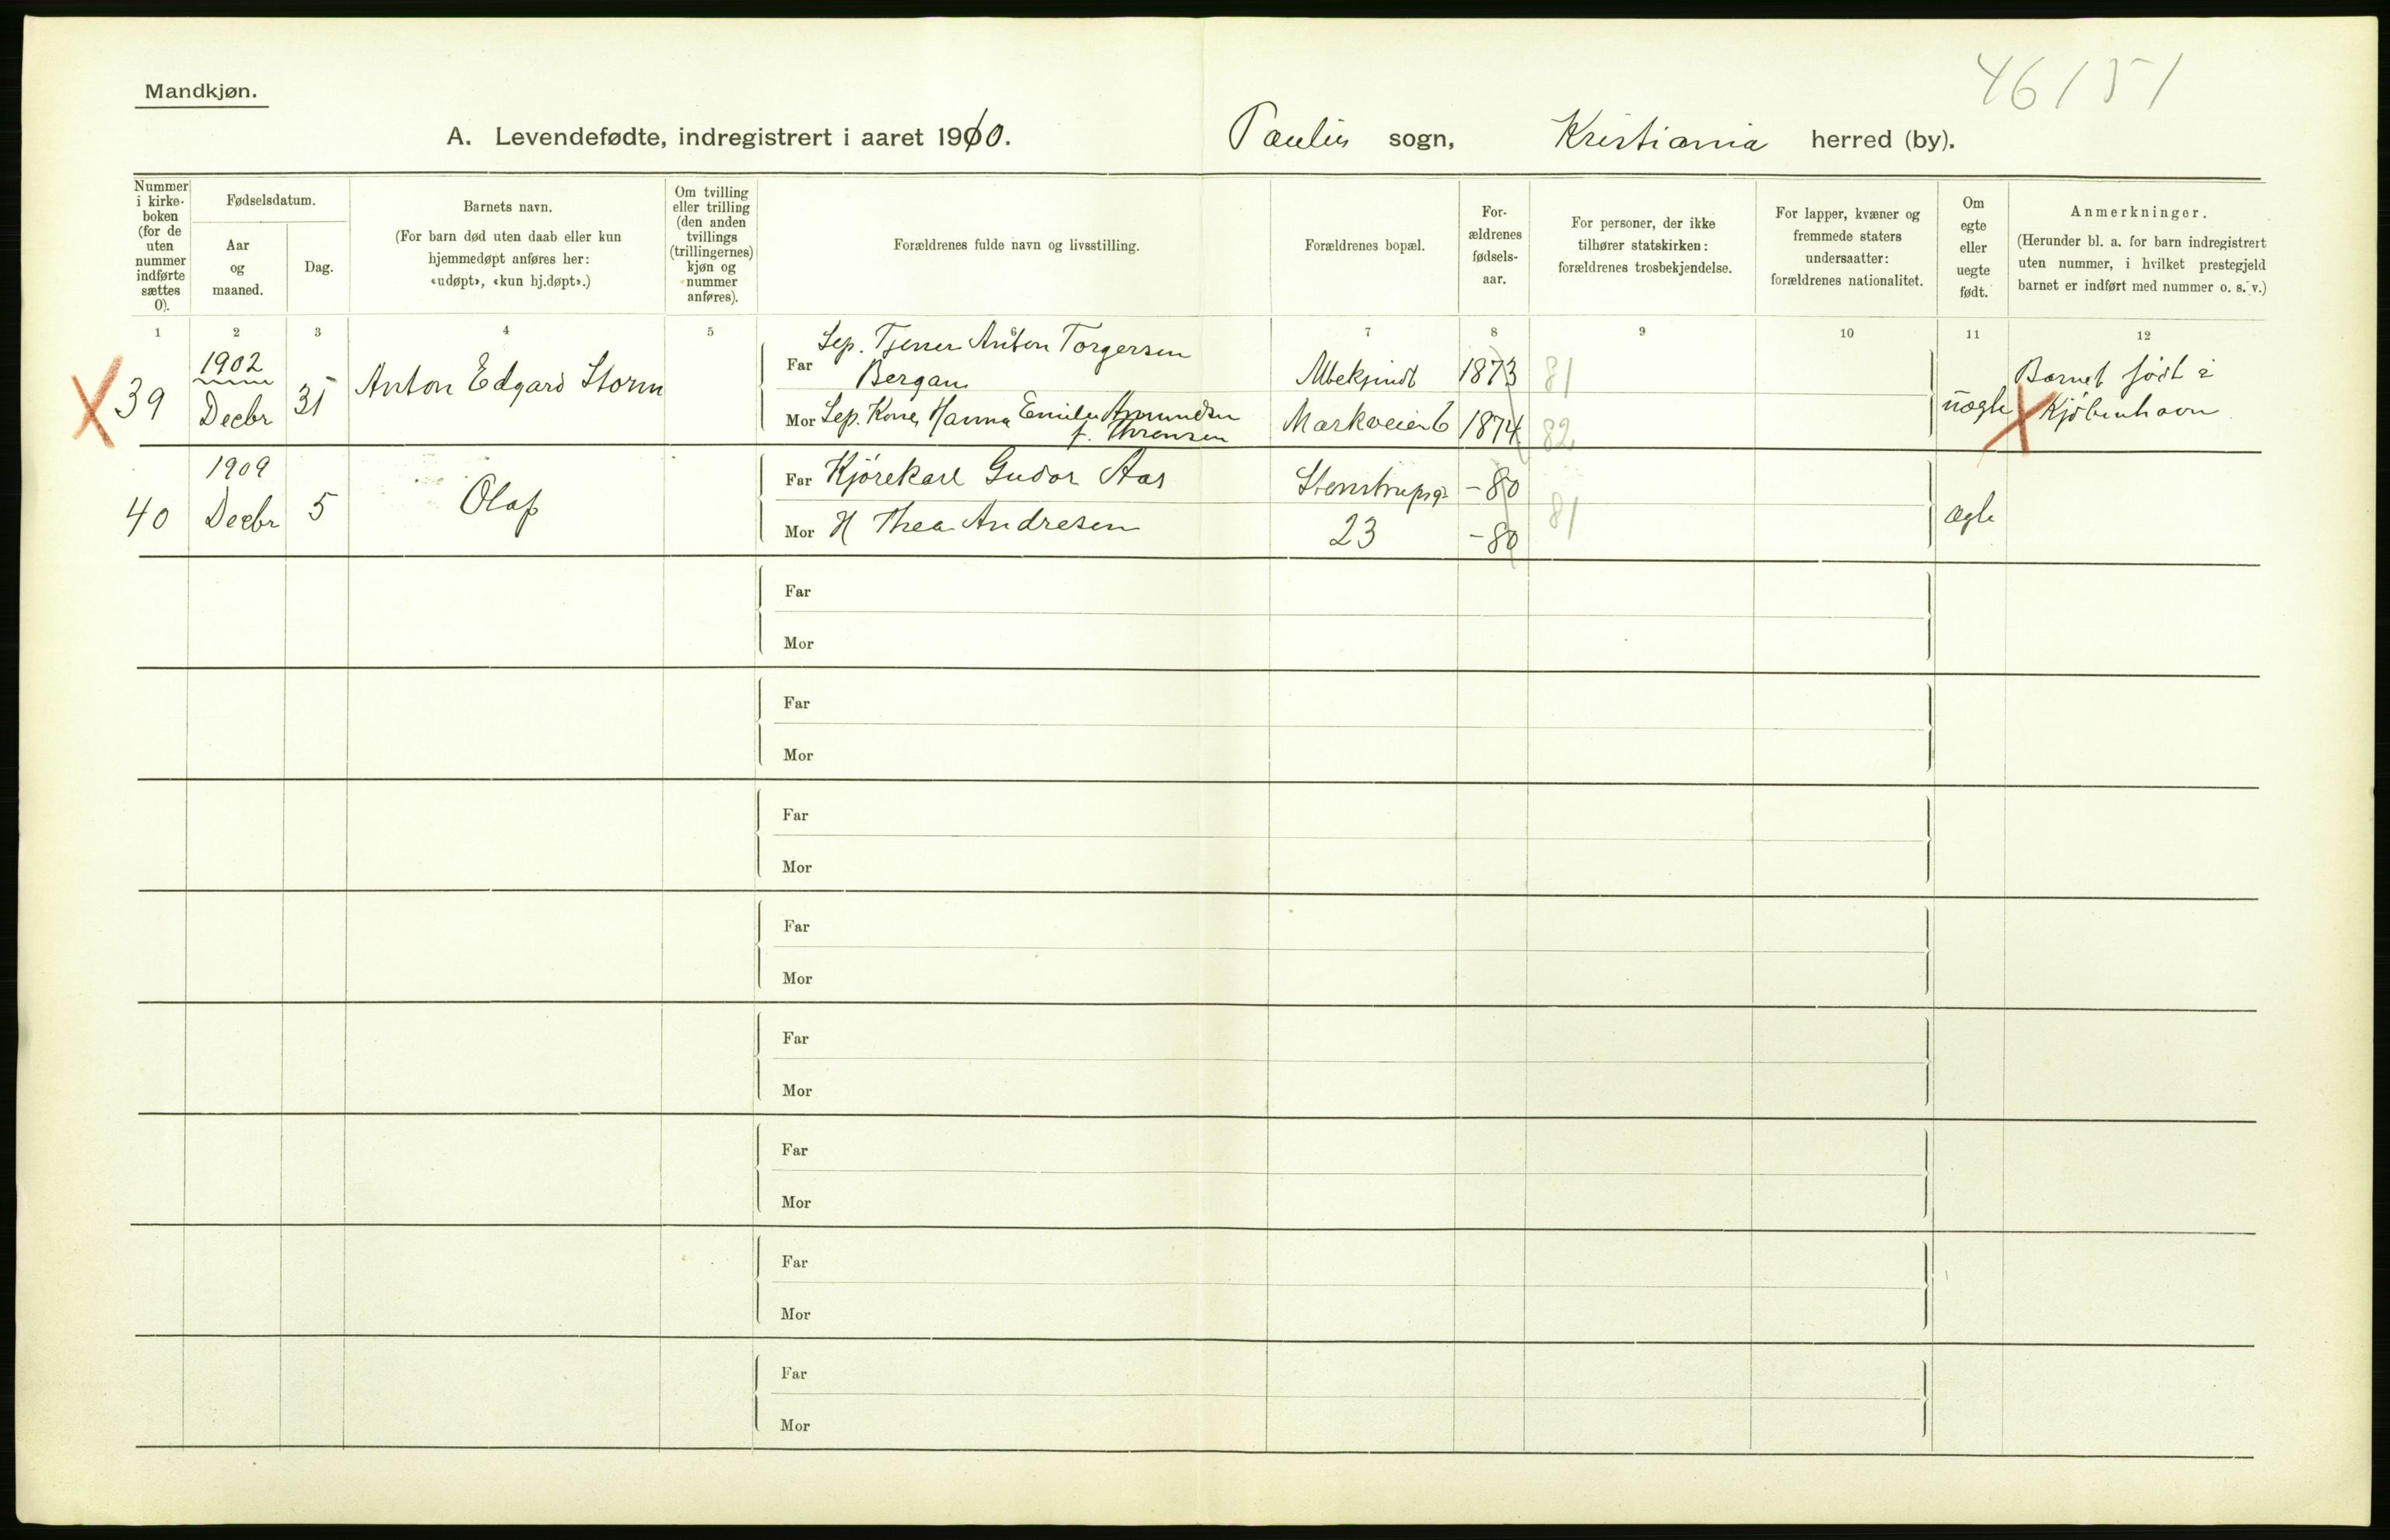 46151
Mandkjøn.
A. Levendefødte, indregistrert i aaret 1910. Paulus sogn, Kristiania herred (by).
Nummer i kirke-boken (for de uten nummer indførte sættes 0).
Fødselsdatum.
Aar og maaned.
Dag.
Barnets navn.
(For barn død uten daab eller kun hjemmedøpt anføres her: «udøpt», «kun hj.døpt».)
Om tvilling eller trilling (den anden tvillings (trillingernes) kjøn og nummer anføres).
Forældrenes fulde navn og livsstilling.
Forældrenes bopæl.
For-ældrenes fødsels-aar.
For personer, der ikke tilhører statskirken: forældrenes trosbekjendelse.
For lapper, kvæner og fremmede staters undersaatter: forældrenes nationalitet.
Om egte eller uegte født.
Anmerkninger.
(Herunder bl. a. for barn indregistrert uten nummer, i hvilket prestegjeld barnet er indført med nummer o. s. v.)
1 2 3 4 5 6 7 8 9 10 11 12
39 1902 Decbr 31 Anton Edgard Storm
Far Sep. Tjener Anton Torgersen Bergan Ubekjendt 1873 81
Mor Sep. Kone Hanna Emilie Amundsen f. Thoresen Markveien 6 1874 82
uægte Barnet født i Kjøbenhavn
40 1909 Decbr 5 Olaf
Far Kjørekarl Gudor Aas Stenstrupsg. -80
Mor H Thea Andresen 23 -80 81
ægte
Far
Mor
Far
Mor
Far
Mor
Far
Mor
Far
Mor
Far
Mor
Far
Mor
Far
Mor